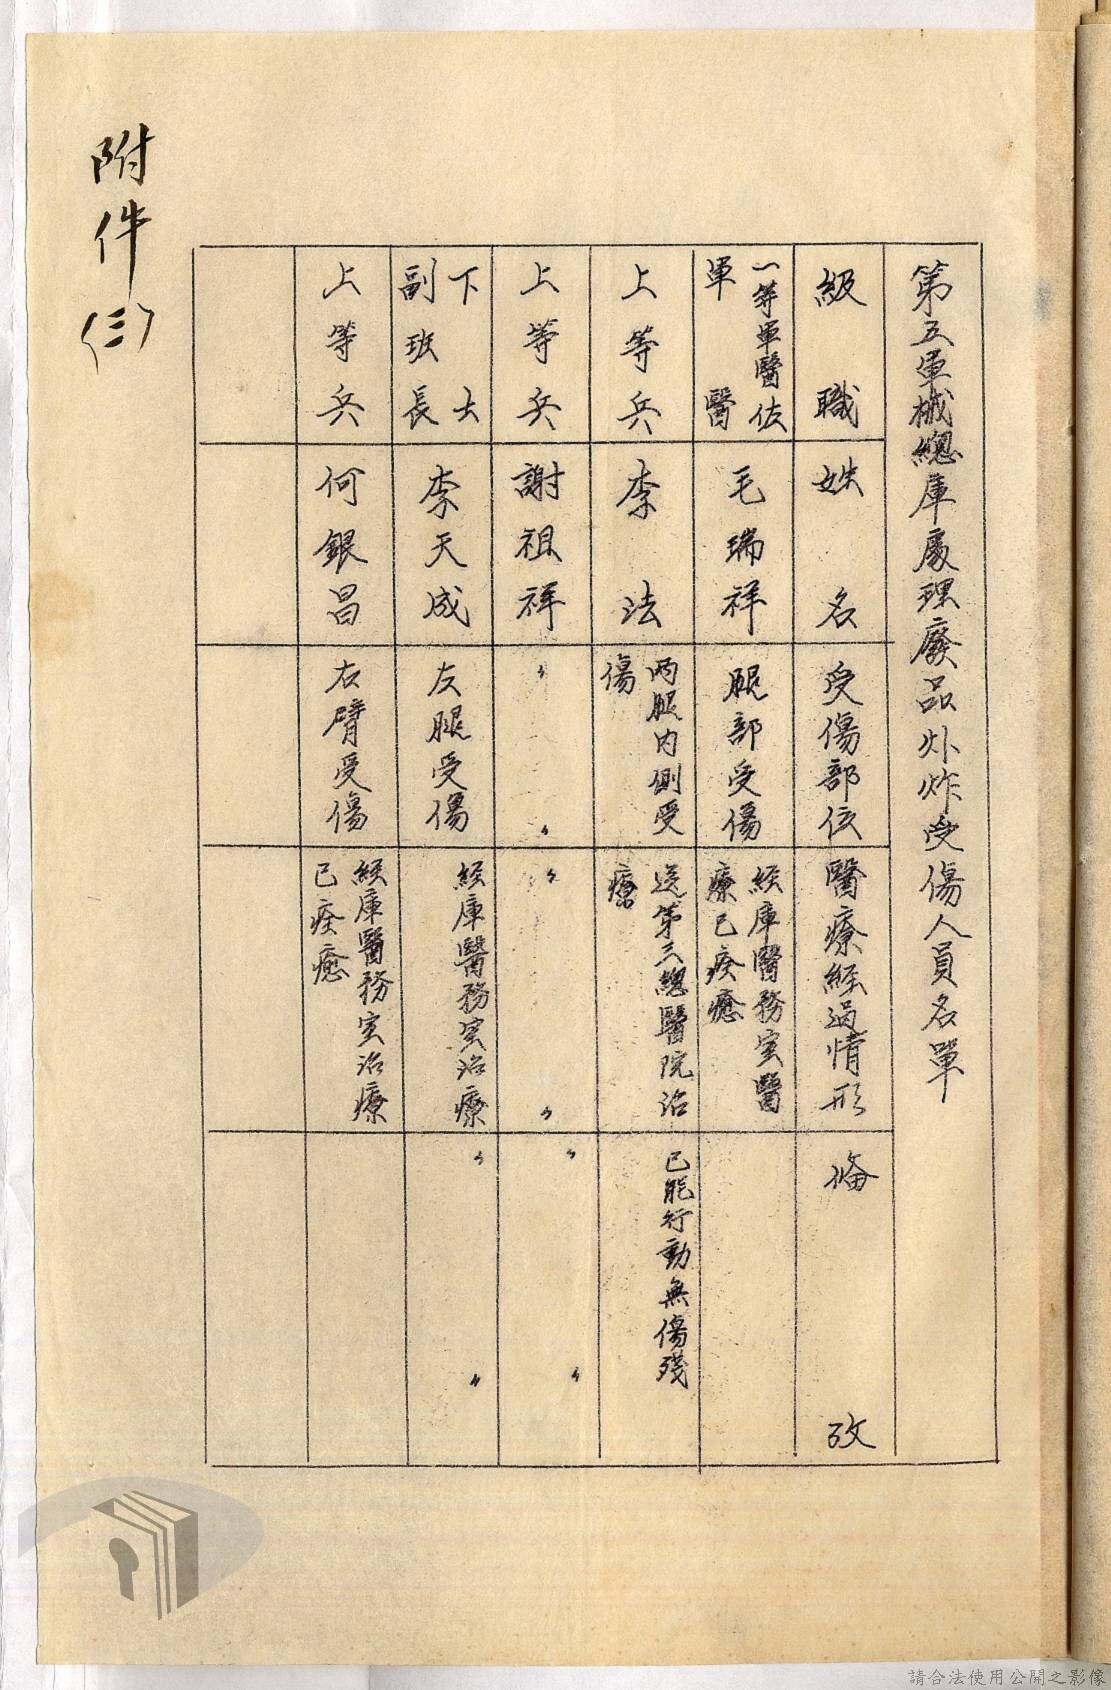 第五軍械總庫處理廢品爆炸受傷人員名單
級職 姓名 受傷部位 醫療經過情形 備攷
一等軍醫佐
軍醫
毛瑞祥
腿部受傷
經庫醫務室醫
療已痊癒
上等兵
李法
兩腿內側受
傷
送第三總醫院治
療
已能行動無傷殘
上等兵
謝祖祥
〃 〃
〃 〃
〃 〃
下士
副班長
李天成
左腿受傷
經庫醫務室治療
〃 〃
上等兵
何銀昌
右臂受傷
經庫醫務室治療
已痊癒
附件(三)
請合法使用公開之影像